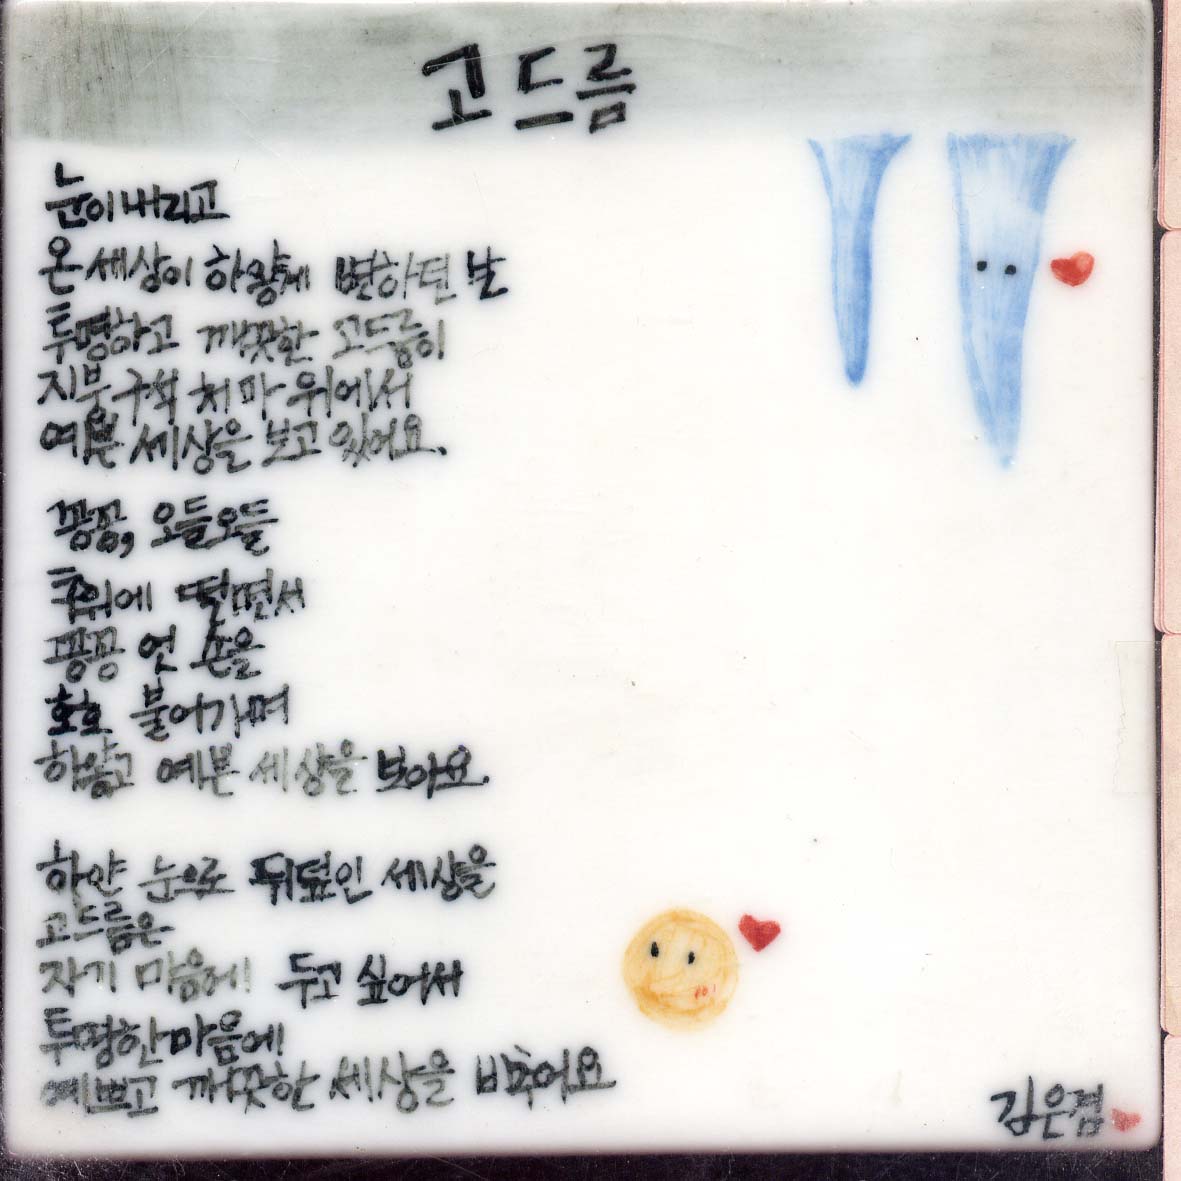 고드름
눈이 내리고
온 세상이 하얗게 변하던 날
투명하고 깨끗한 고드름이
지붕 구석 처마 위에서
예쁜 세상을 보고 있어요.
꽁꽁, 오들오들
추위에 떨면서
꽁꽁 언 손을
호호 불어가며
하얗고 예쁜 세상을 보아요.
하얀 눈으로 뒤덮인 세상을
고드름은
자기 마음에 두고 싶어서
투명한 마음에
예쁘고 깨끗한 세상을 비추어요
김은겸